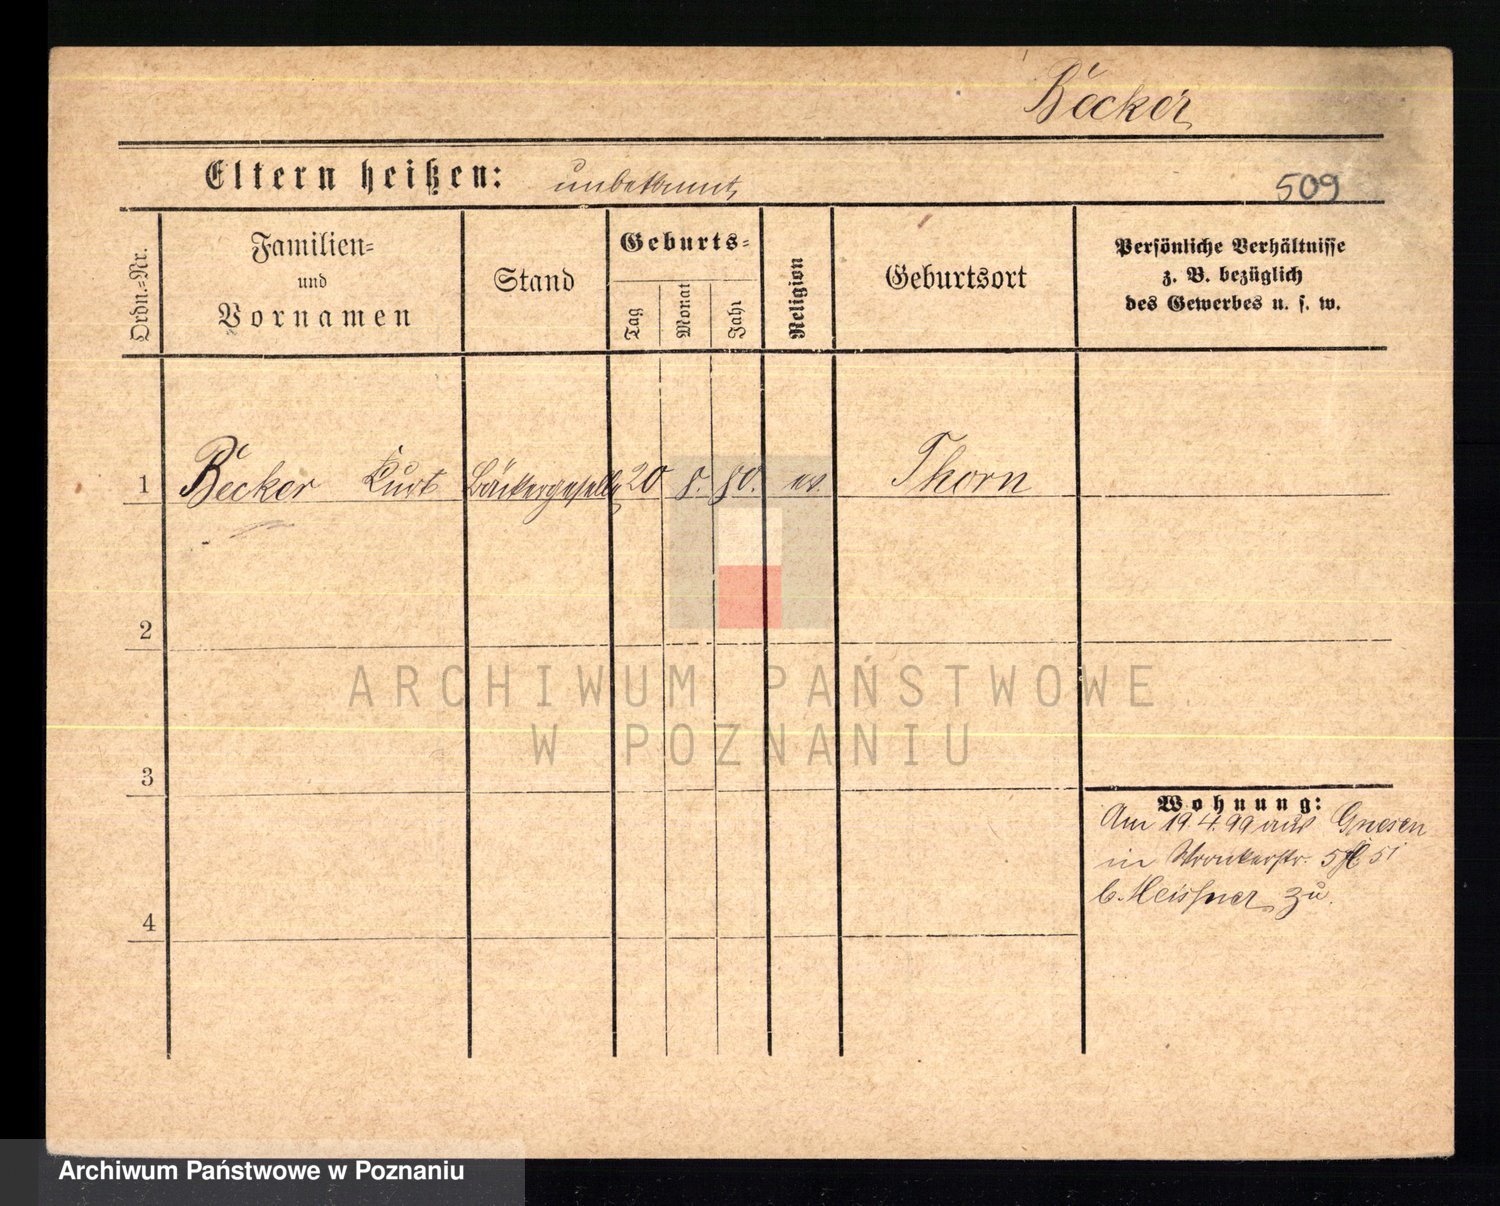 Becker
Eltern heißen: unbekannt
509
Ordn.=Nr.
Familien=
und
Vornamen
Stand
Geburts=
Tag
Monat
Jahr
Religion
Geburtsort
Persönliche Verhältnisse
z. B. bezüglich
des Gewerbes u. s. w.
1 Becker Kurt Bäckergeselle 20 8. 80. ev. Thorn
2
3
4
Wohnung:
Am 19.4.99 aus Gnesen
in Wronkerstr. 5
b. Meissner zu.
ARCHIWUM PAŃSTWOWE
W POZNANIU
Archiwum Państwowe w Poznaniu